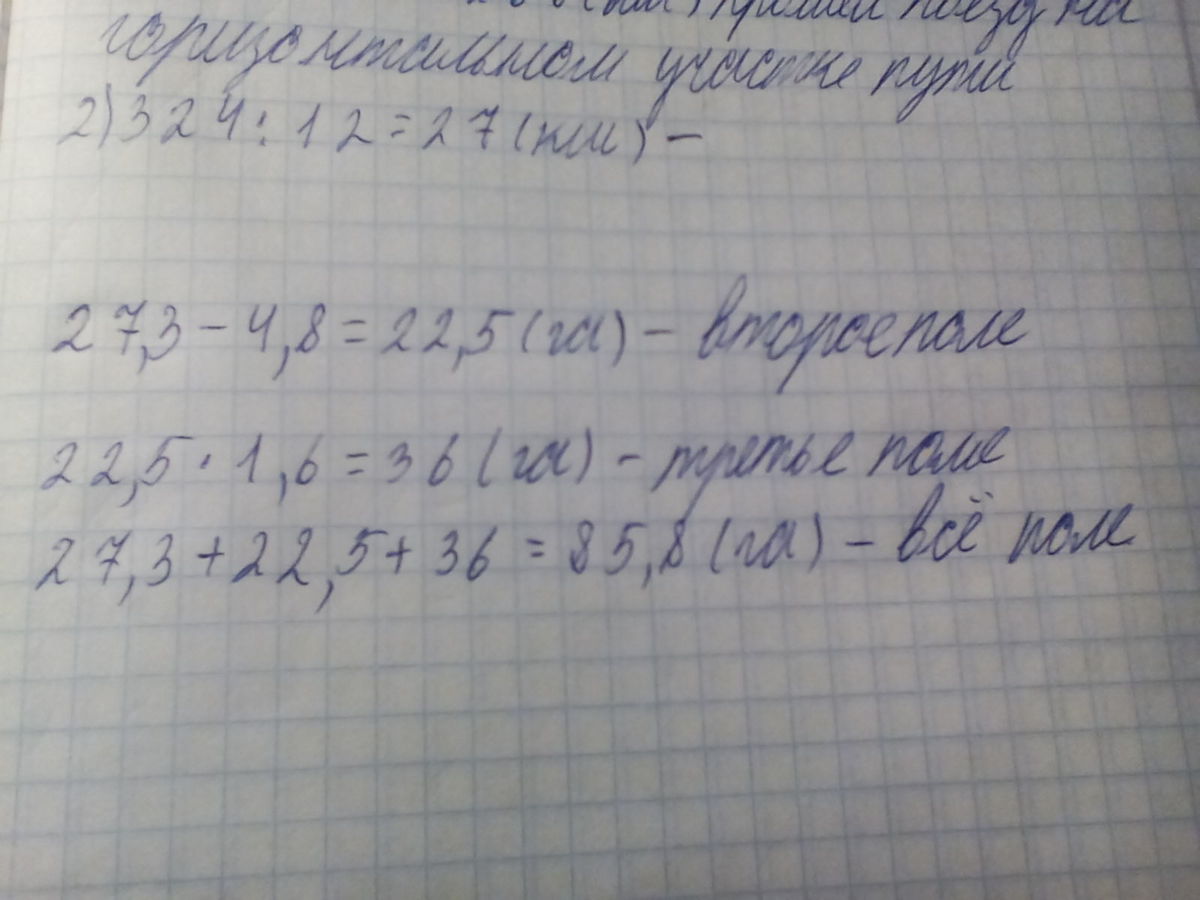 (км) прошёл поезд на
горизонтальном участке пути
2) 324 : 12 = 27 (км) –
27,3 – 4,8 = 22,5 (га) – второе поле
22,5 · 1,6 = 36 (га) – третье поле
27,3 + 22,5 + 36 = 85,8 (га) – всё поле